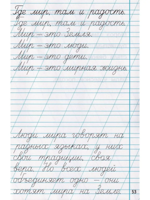 Где мир, там и радость.
Где мир, там и радость.
Мир – это Земля.
Мир – это люди.
Мир – это дети.
Мир – это мирная жизнь.
Люди мира говорят на
разных языках, у них
свои традиции, своя
вера. Но всех людей
объединяет одно – они
хотят мира на Земле.